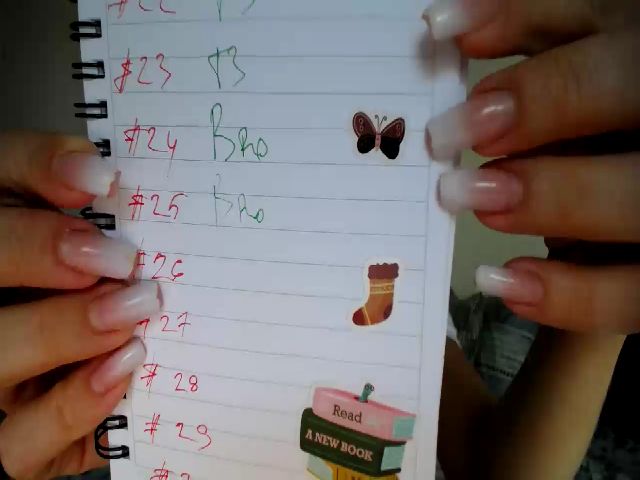 #22
#23 B
#24 Bro
#25 Bro
#26
#27
#28
#29
Read
A NEW BOOK